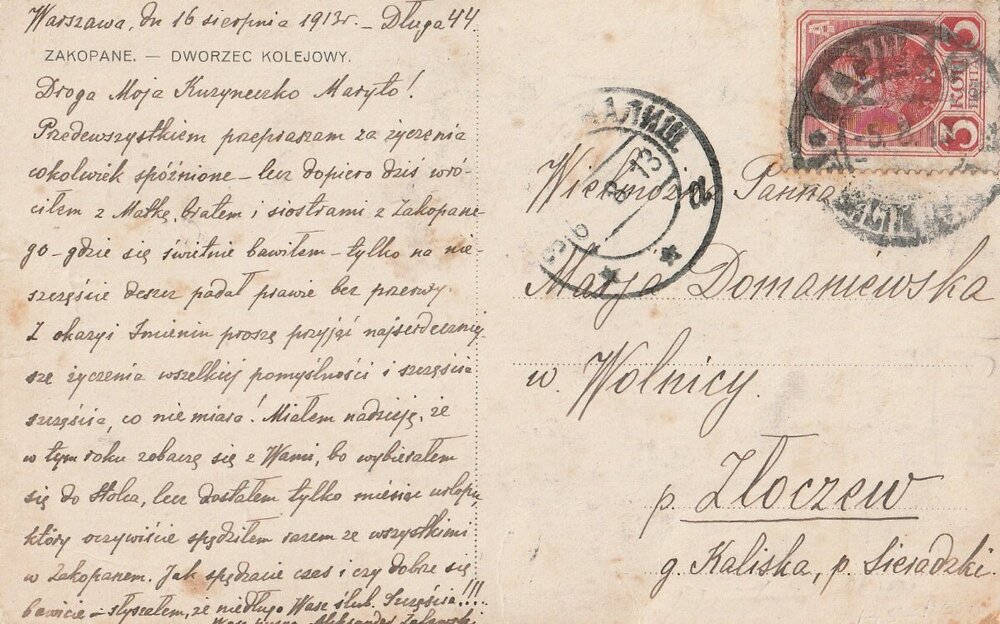 Warszawa, dn 16 sierpnia 1913 r. – Długa 44.
ZAKOPANE. — DWORZEC KOLEJOWY.
Droga Moja Kuzyneczko Maryło!
Przedewszystkiem przepraszam za życzenia
cokolwiek spóźnione – lecz dopiero dziś wró-
ciłem z Matką, bratem i siostrami z Zakopane-
go – gdzie się świetnie bawiłem – tylko na nie-
szczęście deszcz padał prawie bez przerwy.
Z okazyi Imienin proszę przyjąć najserdeczniej-
sze życzenia wszelkiej pomyślności i szczęścia
szczęścia, co nie miara! Miałem nadzieję, że
w tym roku zobaczę się z Wami, bo wybierałem
się do Stolca, lecz dostałem tylko miesiąc urlopu,
który oczywiście spędziłem razem ze wszystkimi
w Zakopanem. Jak spędzacie czas i czy dobrze się
bawicie – słyszałem, że niedługo Wasz ślub. Szczęścia!!!
Wasz kuzyn Aleksander
3 КОП
3
КАЛИШ
8 13
2
Wielmożna Panna
Marja Domaniewska
w Wolnicy.
p. Złoczew
g. Kaliska, p. Sieradzki.